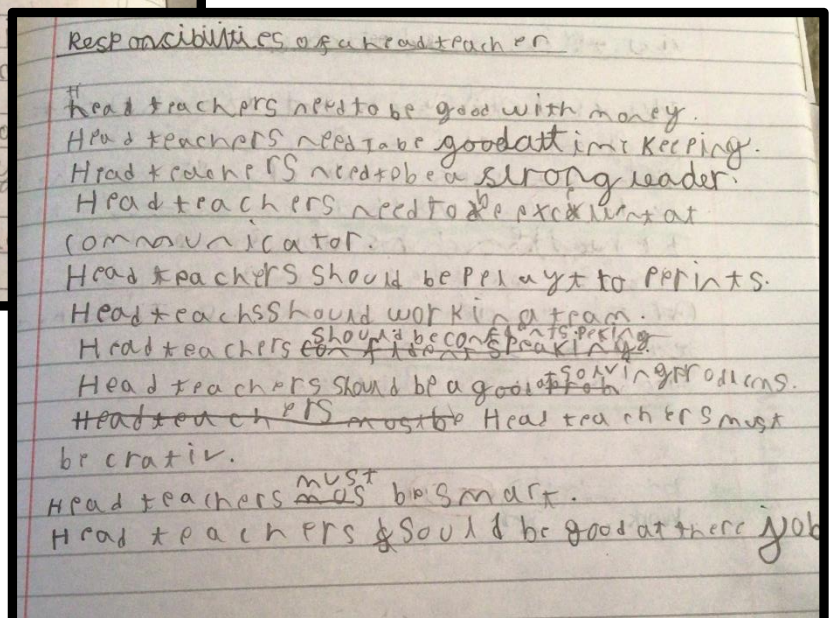 Responsibilities of a head teacher
Head teachers need to be good with money.
Head teachers need to be good at time keeping.
Head teachers need to be a strong leader.
Head teachers need to be excelent at
communicator.
Head teachers should be pelayt to perints.
Head teachs should work in a team.
Head teachers should be confident speking
Head teachers should be a good at solving problems.
Head teachers must be Head teachers must
be crativ.
Head teachers must be smart.
Head teachers sould be good at there job